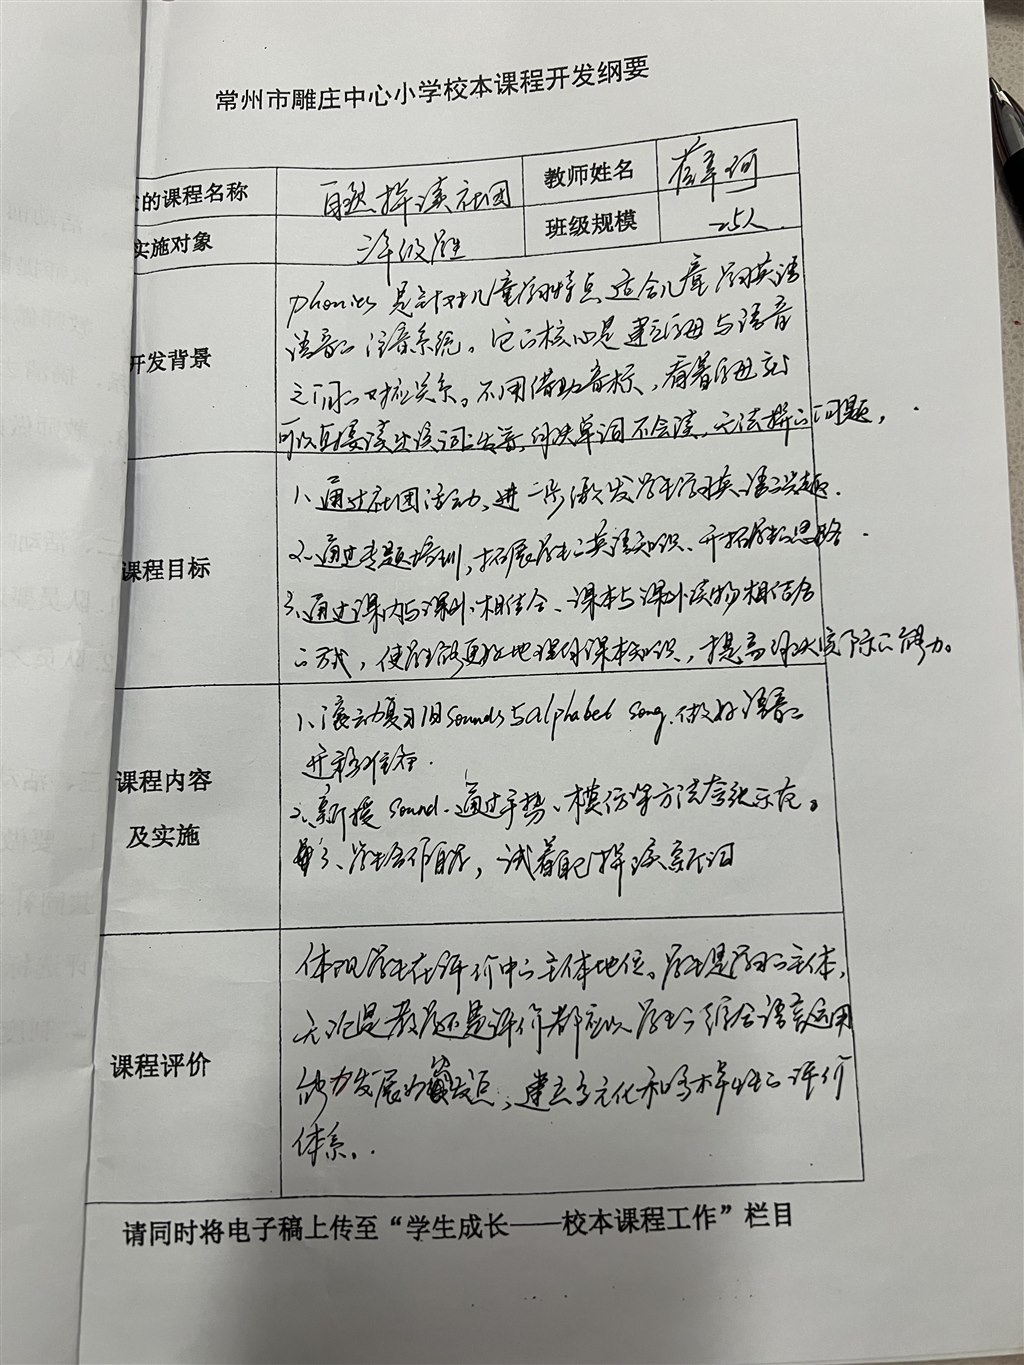 常州市雕庄中心小学校本课程开发纲要
的课程名称 自然拼读社团 教师姓名
实施对象 三年级学生 班级规模 25人
Phonics 是针对儿童学习特点适合儿童学习英语
开发背景 语音的注音系统。它的核心是建立字母与语音
之间的对应关系。不用借助音标，看着字母就
可以直接读出该词的发音，解决单词不会读，无法拼的问题。
1、通过社团活动，进一步激发学生学习英语的兴趣.
2、通过专题培训，拓展学生的英语知识、开拓学生的思路.
课程目标
3、通过课内与课外相结合、课本与课外读物相结合
的方式，使学生能更好地理解课本知识，提高解决实际的能力。
1、滚动复习旧sounds与alphabet song.做好语音的
迁移准备.
课程内容
2、新授 sound.通过手势、模仿等方法夸张示范。
及实施
3、学生合作自学，试着自己拼读新词
体现学生在评价中的主体地位。学生是学习的主体，
无论是教学还是评价都应以学生的综合语言运用
课程评价
能力发展为出发点，建立多元化和多样性的评价
体系。
请同时将电子稿上传至“学生成长——校本课程工作”栏目